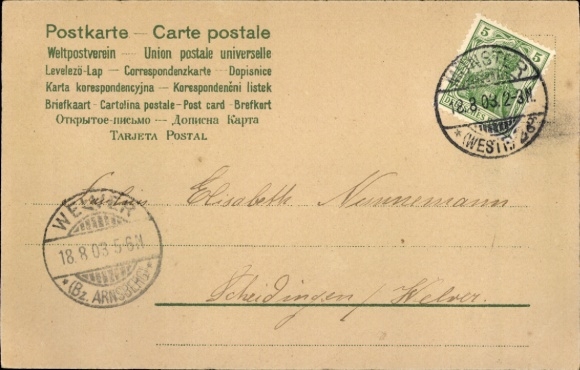 Postkarte — Carte postale
Weltpostverein — Union postale universelle
Levelező-Lap — Correspondenzkarte — Dopisnice
Karta korespondencyjna — Korespondenční listek
Briefkaart - Cartolina postale - Post card - Brefkort
Открытое-письмо — Дописна Карта
TARJETA POSTAL
5 5
MÜNSTER
18.8.03.2-3N.
*(WESTF.)
Fräulein Elisabeth Nunnemann
WELVER
18.8.03.5-6N
*(Bz. ARNSBERG)*
Scheidingen / Welver.